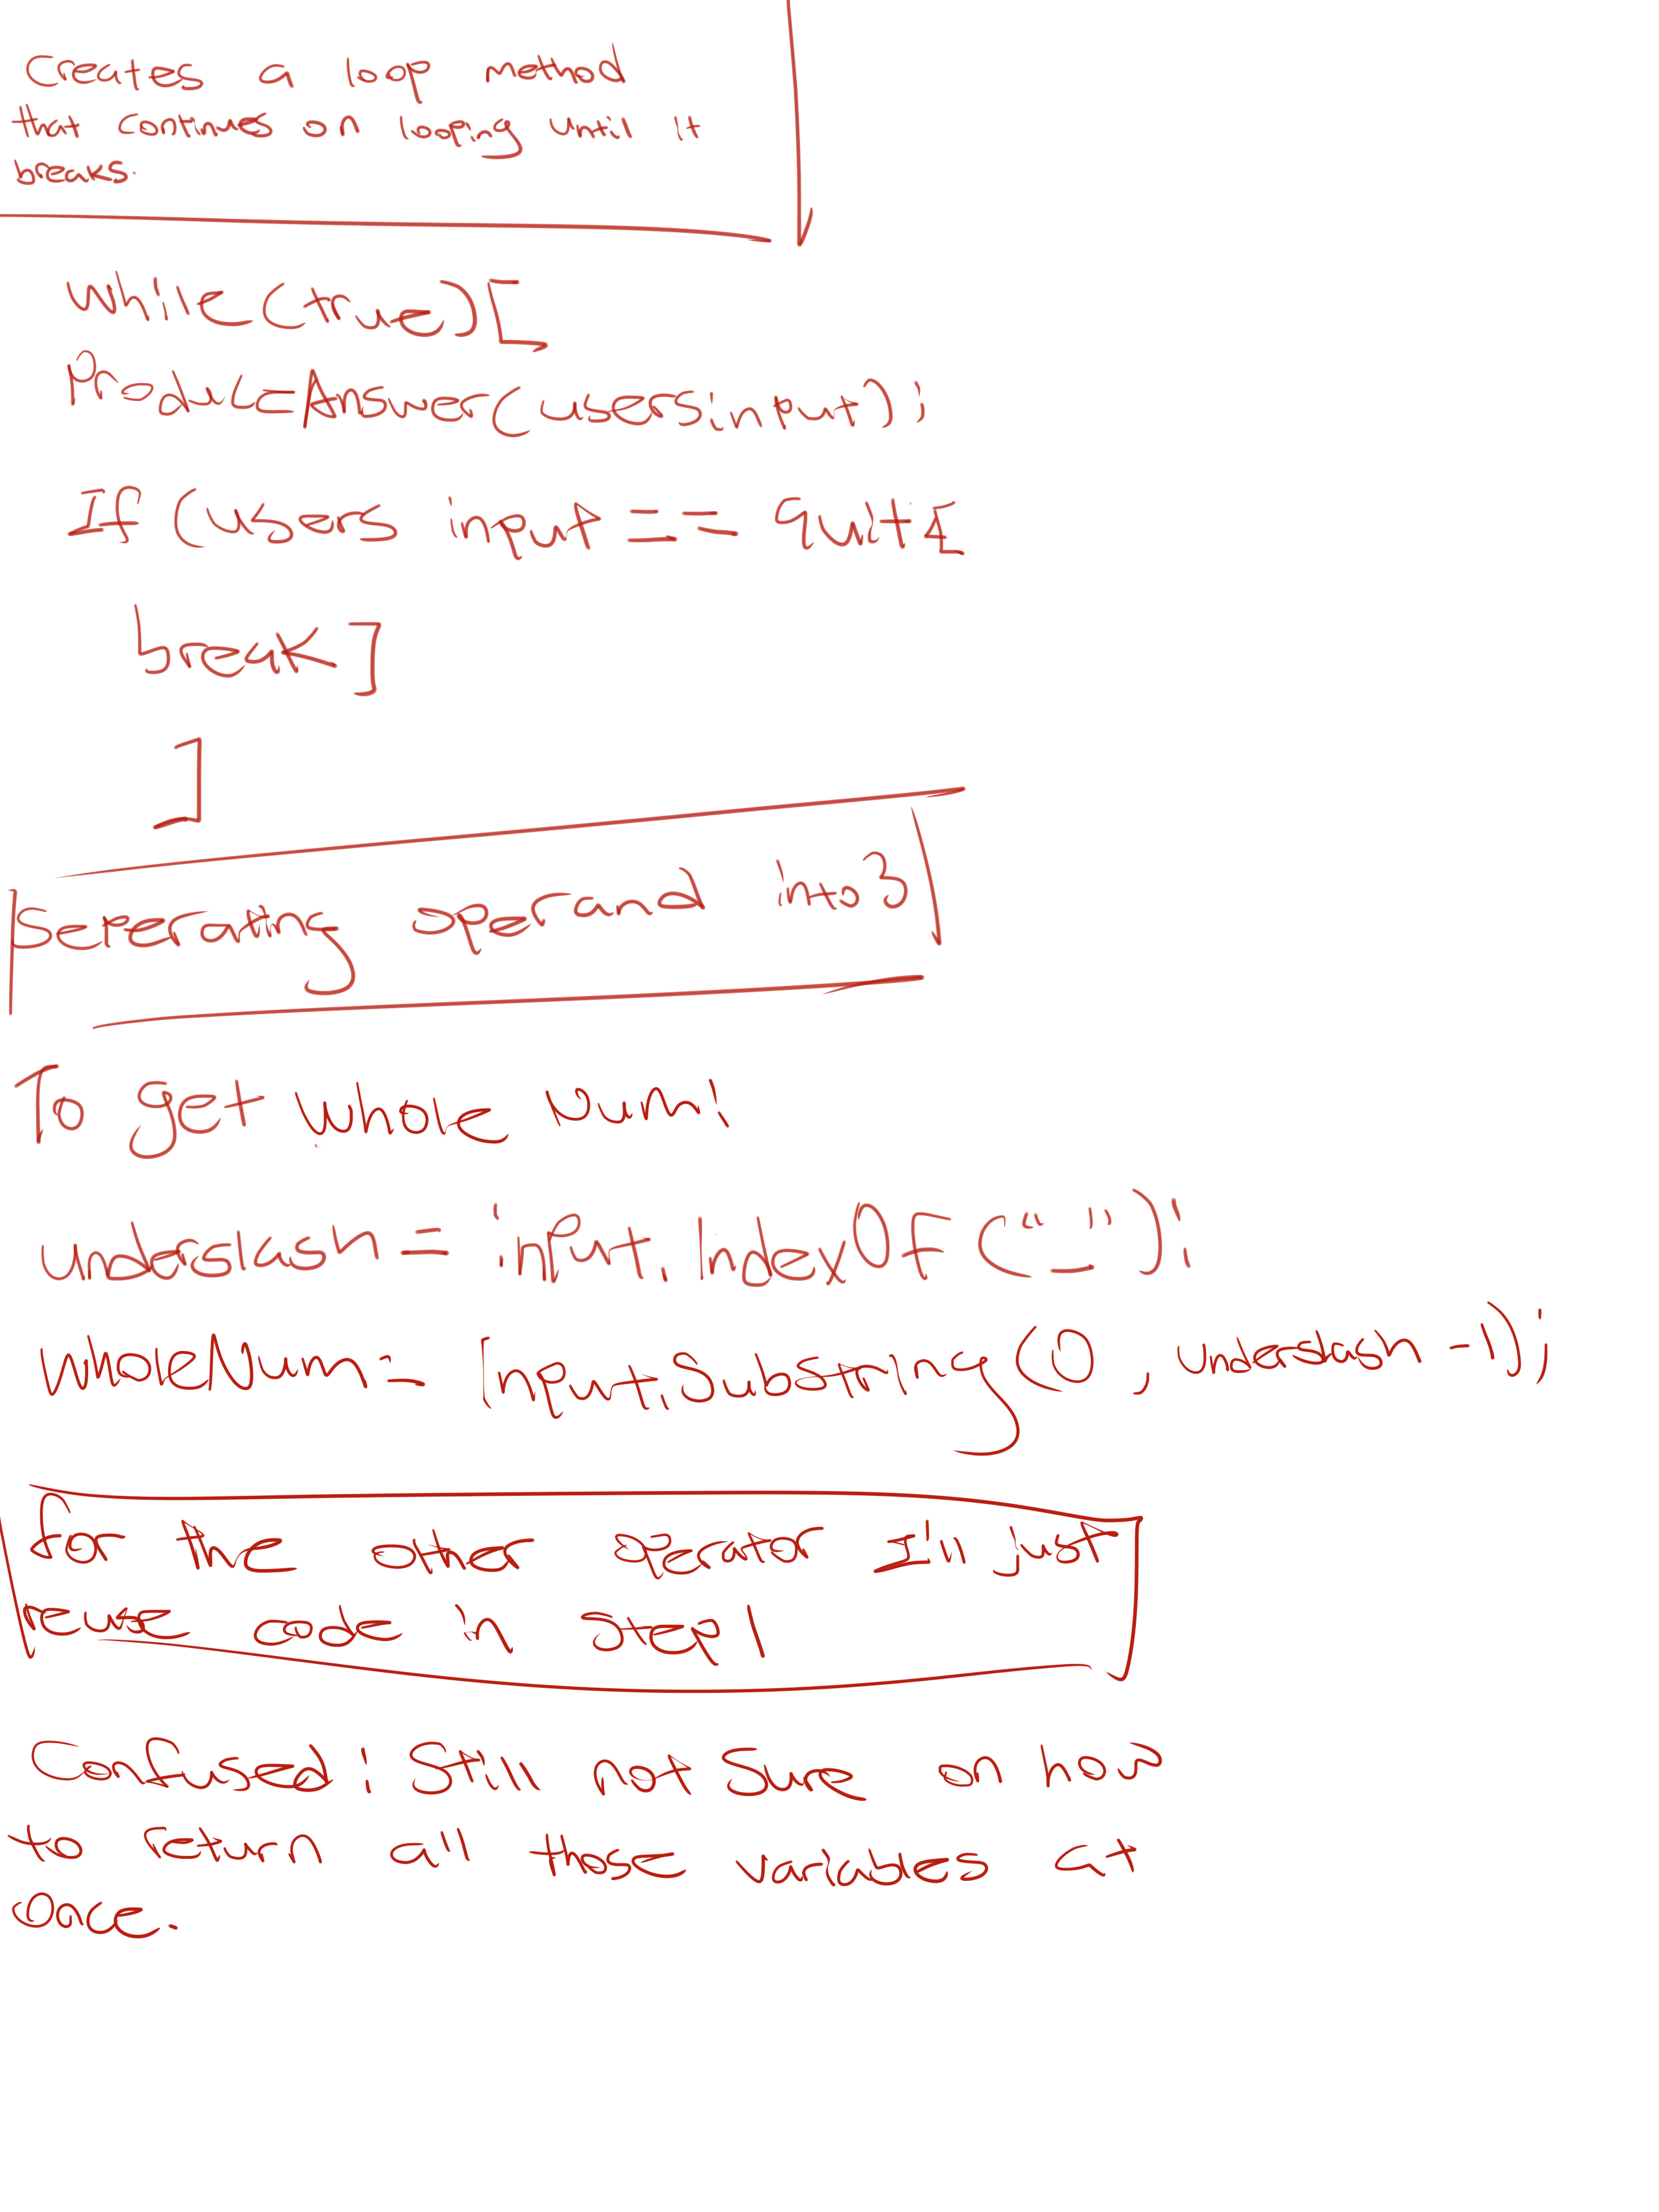 Creates a loop method
that continues on looping until it
breaks.
while(true)[
ProduceAnswer(usersinput);
If (users input == quit[
break]
]
Seterating operand into 3
To get whole num:
underclasn = input.indexOf("_");
wholeNum = input.substring(0, underslash-1);
For the other operator I'll just
reuse code in step 1
Confused: Still not Sure on how
to return all those variables at
Once.